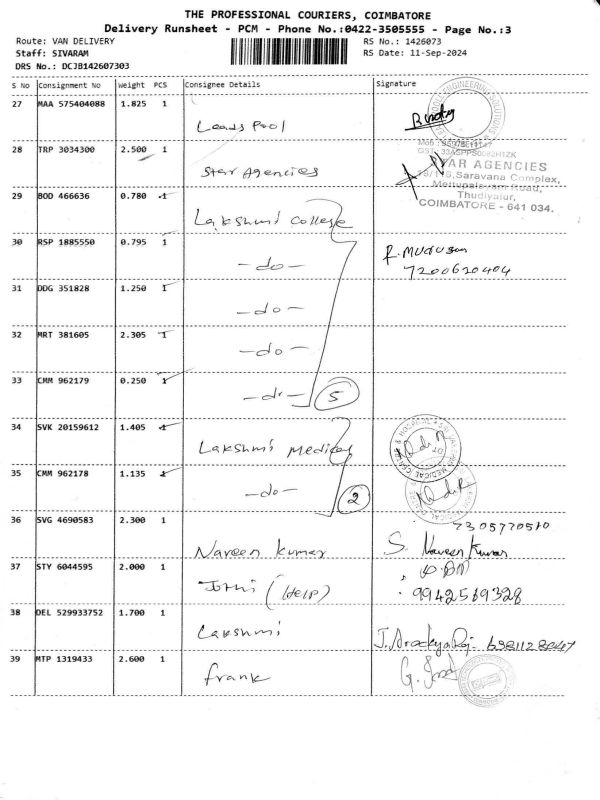 THE PROFESSIONAL COURIERS, COIMBATORE
Delivery Runsheet - PCM - Phone No.:0422-3505555 - Page No.:3
Route: VAN DELIVERY RS No.: 1426073
Staff: SIVARAM RS Date: 11-Sep-2024
DRS No.: DCJB142607303
S No Consignment No Weight PCS Consignee Details Signature
27 MAA 575404088 1.825 1 Leads Pool
28 TRP 3034300 2.500 1 Star Agencies
STAR AGENCIES
Saravana Complex,
Mettupalayam Road,
Thudiyalur,
COIMBATORE - 641 034.
29 BOD 466636 0.780 1 Lakshmi College
30 RSP 1885550 0.795 1 -do- R. Murugan
7200620404
31 DDG 351828 1.250 1 -do-
32 MRT 381605 2.305 1 -do-
33 CMM 962179 0.250 1 -do- 5
34 SVK 20159612 1.405 1 Lakshmi Medical
35 CMM 962178 1.135 1 -do- 2
36 SVG 4690583 2.300 1 Naveen Kumar S. Naveen Kumar
37 STY 6044595 2.000 1 Jothi (Help)
9942569328
38 DEL 529933752 1.700 1 Lakshmi
39 MTP 1319433 2.600 1 frank